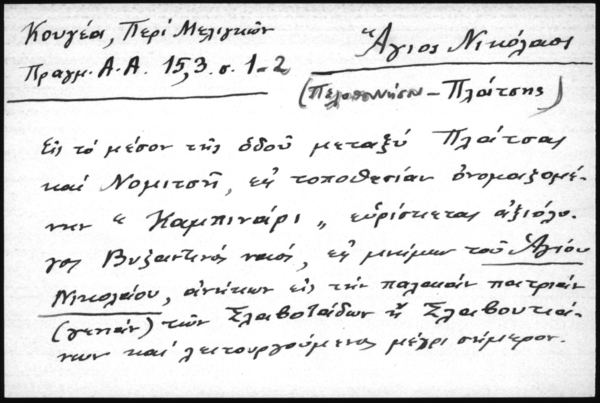 Κουγέα, Περί Μελιγκῶν
Πραγμ. Α.Α. 15,3. σ. 1-2
Ἅγιος Νικόλαος
(Πελοπόννησον - Πλάτσης)
Εἰς τό μέσον τῆς ὁδοῦ μεταξύ Πλάτσας
καί Νομιτσῆ, εἰς τοποθεσίαν ὀνομαζομέ-
νην "Καμπινάρι„ εὑρίσκεται ἀξιόλο-
γος Βυζαντινός ναός, εἰς μνήμην τοῦ Ἁγίου
Νικολάου, ἀνήκων εἰς τήν παλαιάν πατριάν
(γενεάν) τῶν Σλαβοϊάδων ἤ Σλαβουτιά-
νων καί λειτουργούμενος μέχρι σήμερον.